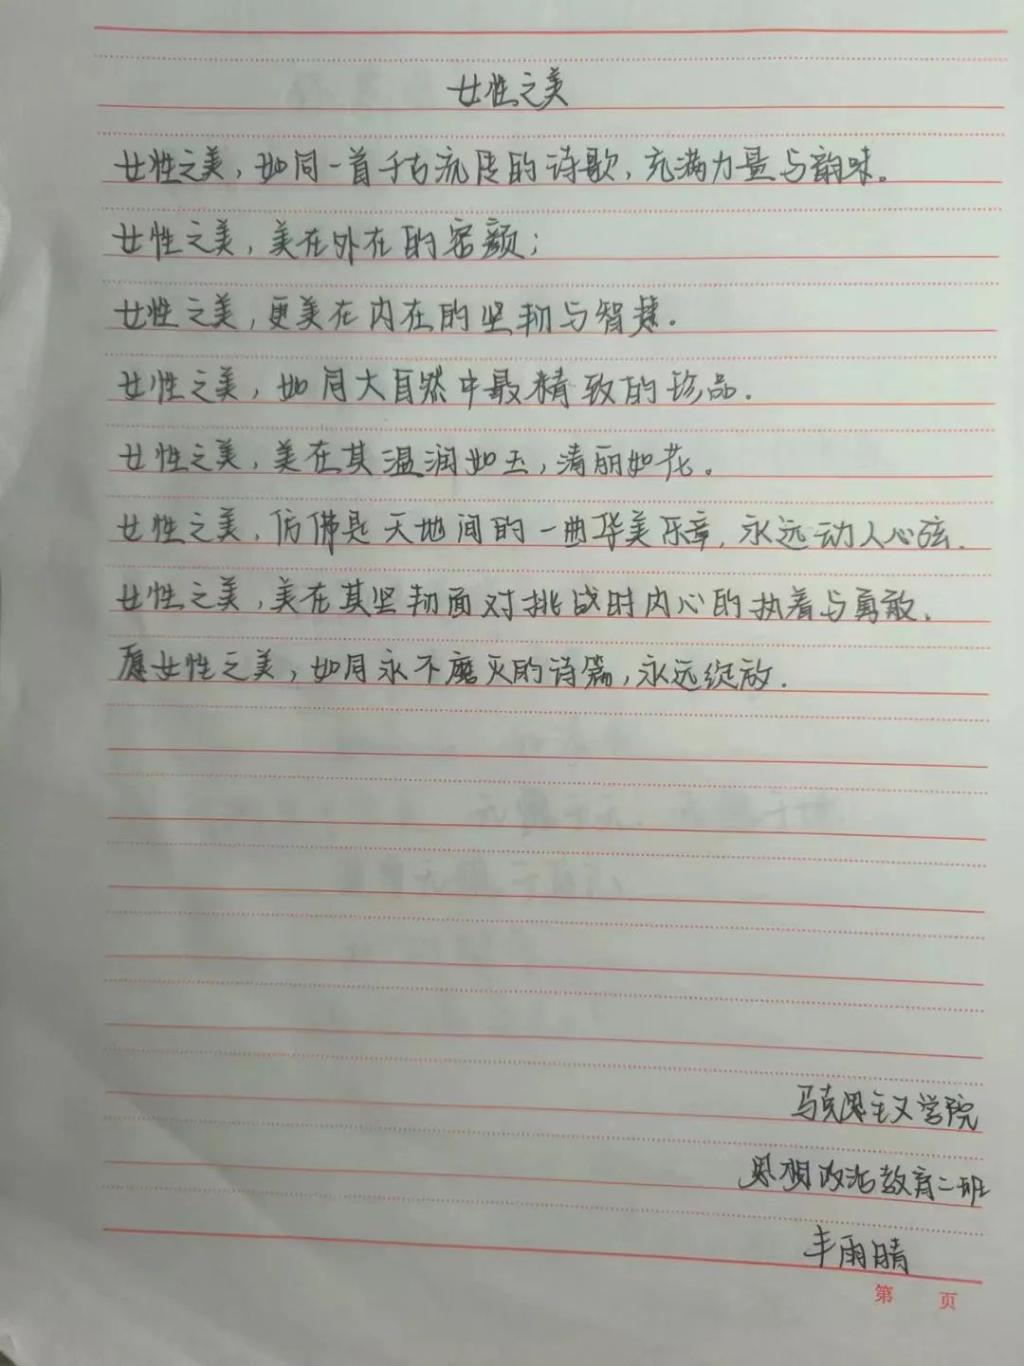 女性之美
女性之美，如同一首千古流传的诗歌，充满力量与韵味。
女性之美，美在外在的容颜；
女性之美，更美在内在的坚韧与智慧.
女性之美，如同大自然中最精致的珍品.
女性之美，美在其温润如玉，清丽如花。
女性之美，仿佛是天地间的一曲华美乐章，永远动人心弦.
女性之美，美在其坚韧面对挑战时内心的执着与勇敢.
愿女性之美，如同永不磨灭的诗篇，永远绽放.
马克思主义学院
思想政治教育二班
丰雨晴
第 页